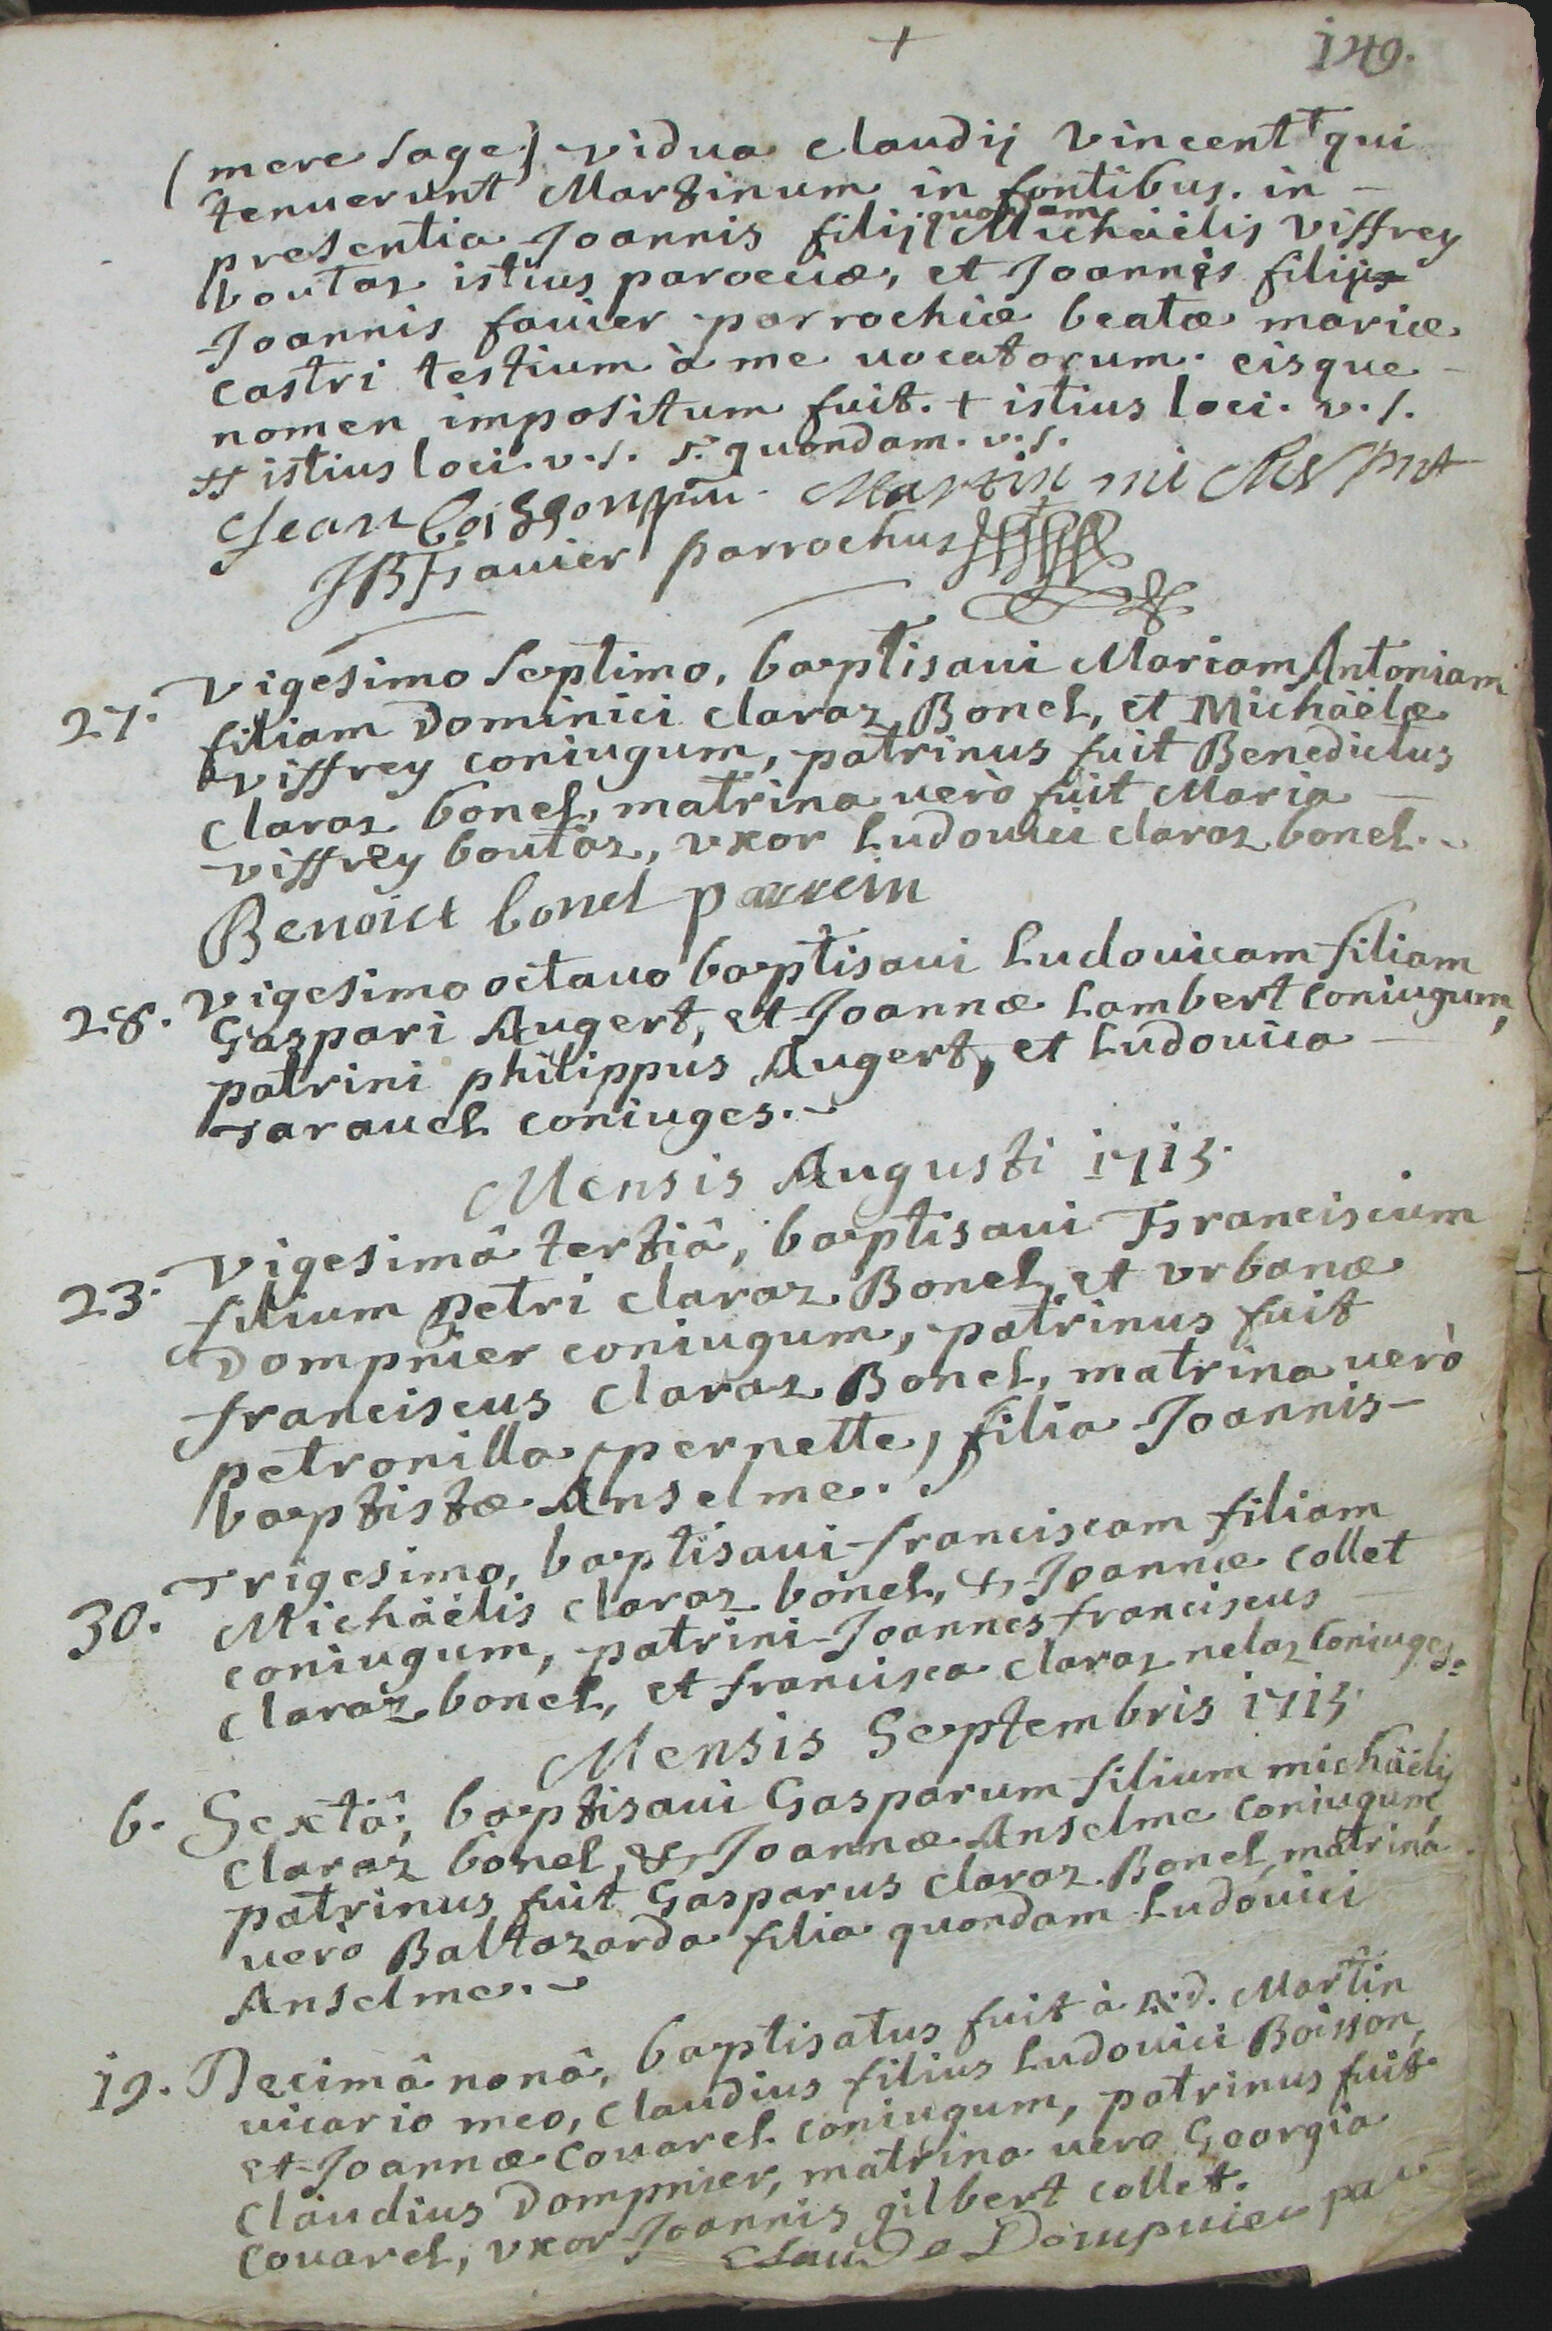 +
149.
(mere sage) vidua claudij vincent + qui
tenuerunt Martinum in fontibus. in -
presentia Joannis filij quondam Michaëlis viffrey
boutaz istius parœciæ, et Joannis filij s
Joannis favier parrochiæ beatæ mariæ
castri testium à me uocatorum. eisque -
nomen impositum fuit. + istius loci. v. s.
++ istius loci. v. s. s. quondam. v. s.
Jean boisson Martin
JB Favier parrochus
27. Vigesimo Septimo, baptisaui Mariam Antoniam
filiam Dominici claraz Bonel, et Michäelæ
viffrey coniugum, patrinus fuit Benedictus
claraz bonel, matrina uerò fuit Maria -
viffrey boutaz, vxor Ludouici claraz bonel.
Benoict bonel parrein
28. Vigesimo octauo baptisaui Ludouicam filiam
Gaspari Augert, et Joannæ Lambert coniugum,
patrini philippus Augert, et Ludouica -
Tarauel coniuges.
Mensis Augusti 1715.
23. Vigesimâ tertiâ, baptisaui Franciscum
filium petri claraz Bonel, et vrbanæ
Dompnier coniugum, patrinus fuit
franciscus claraz Bonel, matrina uerò
petronilla, pernette, filia Joannis -
baptistæ Anselme.
30. Trigesimo, baptisaui franciscam filiam
Michäëlis claraz bonel, & Joannæ collet
coniugum, patrini Joannes franciscus -
claraz bonel, et francisca claraz nelaz coniuges.
Mensis Septembris 1715.
6. Sextâ, baptisaui Gasparum filium michäëlis
claraz bonel, & Joannæ Anselme coniugum,
patrinus fuit Gasparus claraz Bonel, matrina
uerò Baltazarda filia quondam Ludouici
Anselme.
19. Decimâ nonâ, baptisatus fuit à R.d. Martin
uicario meo, claudius filius Ludouici Boisson,
et Joannæ Couarel coniugum, patrinus fuit
Claudius Dompnier, matrina uero Georgia
Couarel, vxor Joannis gilbert collet.
Claude Dompnier